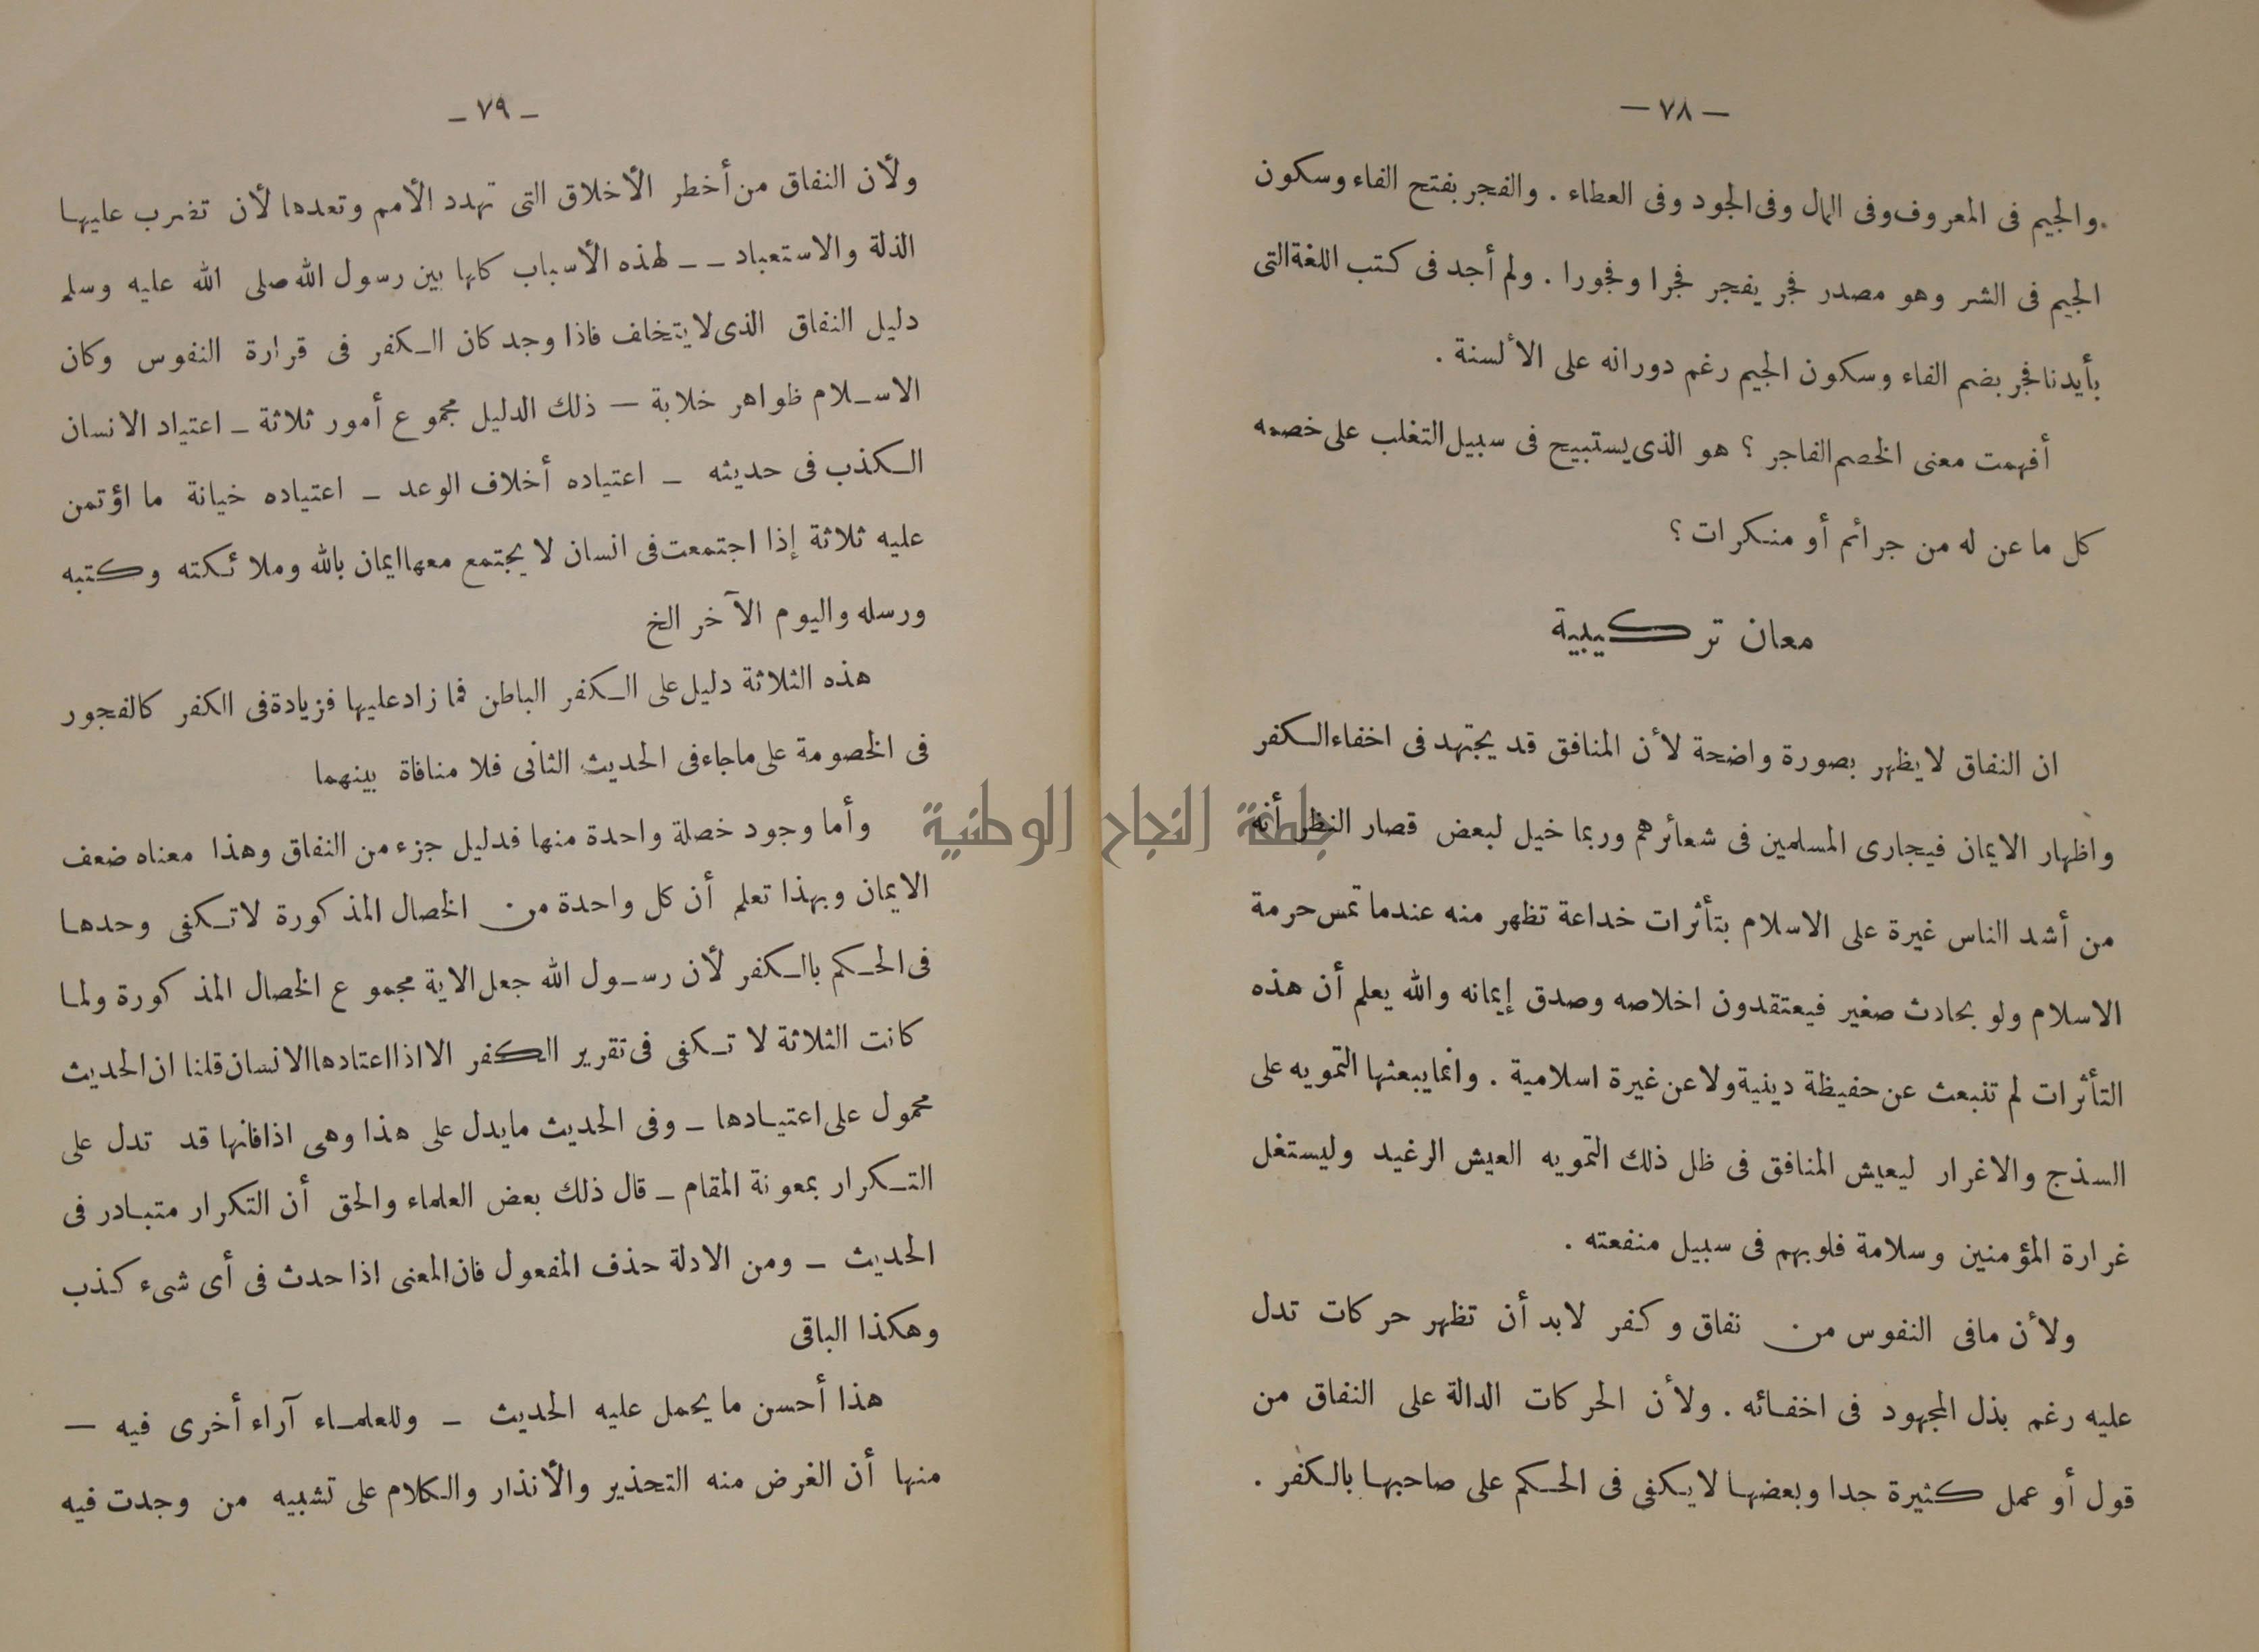 — ٧٨ —
.والجيم فى المعروف وفى المال وفى الجود وفى العطاء . والفجر بفتح الفاء وسكون
الجيم فى الشر وهو مصدر فجر يفجر فجرا وفجورا . ولم أجد فى كتب اللغة التى
بأيدنا فجر بضم الفاء وسكون الجيم رغم دورانه على الألسنة .
أفهمت معنى الخصم الفاجر ؟ هو الذى يستبيح فى سبيل التغلب على خصمه
كل ما عن له من جرائم أو منكرات ؟
معان تركيبية
ان النفاق لا يظهر بصورة واضحة لأن المنافق قد يجتهد فى اخفاء الكفر
واظهار الايمان فيجارى المسلمين فى شعائرهم وربما خيل لبعض قصار النظر أنه
من أشد الناس غيرة على الاسلام بتأثرات خداعة تظهر منه عندما تمس حرمة
الاسلام ولو بحادث صغير فيعتقدون اخلاصه وصدق إيمانه والله يعلم أن هذه
التأثرات لم تنبعث عن حفيظة دينية ولا عن غيرة اسلامية . وانما يبعثها التمويه على
السذج والاغرار ليعيش المنافق فى ظل ذلك التمويه العيش الرغيد وليستغل
غرارة المؤمنين وسلامة قلوبهم فى سبيل منفعته .
ولأن مافى النفوس من نفاق وكفر لابد أن تظهر حركات تدل
عليه رغم بذل المجهود فى اخفائه . ولأن الحركات الدالة على النفاق من
قول أو عمل كثيرة جدا وبعضها لايكفى فى الحكم على صاحبها بالكفر .
— ٧٩ —
ولأن النفاق من أخطر الأخلاق التى تهدد الأمم وتعدها لأن تضرب عليها
الذلة والاستعباد – – لهذه الأسباب كلها بين رسول الله صلى الله عليه وسلم
دليل النفاق الذى لا يتخلف فاذا وجد كان الكفر فى قرارة النفوس وكان
الاسلام ظواهر خلابة — ذلك الدليل مجموع أمور ثلاثة – اعتياد الانسان
الكذب فى حديثه – اعتياده أخلاف الوعد – اعتياده خيانة ما اؤتمن
عليه ثلاثة إذا اجتمعت فى انسان لا يجتمع معها ايمان بالله وملائكته وكتبه
ورسله واليوم الآخر الخ
هذه الثلاثة دليل على الكفر الباطن فما زاد عليها فزيادة فى الكفر كالفجور
فى الخصومة على ماجاء فى الحديث الثانى فلا منافاة بينهما
وأما وجود خصلة واحدة منها فدليل جزء من النفاق وهذا معناه ضعف
الايمان وبهذا تعلم أن كل واحدة من الخصال المذكورة لاتكفى وحدها
فى الحكم بالكفر لأن رسول الله جعل الاية مجموع الخصال المذكورة ولما
كانت الثلاثة لا تكفى فى تقرير الكفر الا اذا اعتادها الانسان قلنا ان الحديث
محمول على اعتيادها – وفى الحديث مايدل على هذا وهى اذا فانها قد تدل على
التكرار بمعونة المقام – قال ذلك بعض العلماء والحق أن التكرار متبادر فى
الحديث – ومن الادلة حذف المفعول فان المعنى اذا حدث فى أى شىء كذب
وهكذا الباقى
هذا أحسن ما يحمل عليه الحديث – وللعلماء آراء أخرى فيه —
منها أن الغرض منه التحذير والأنذار والكلام على تشبيه من وجدت فيه
جامعة النجاح الوطنية